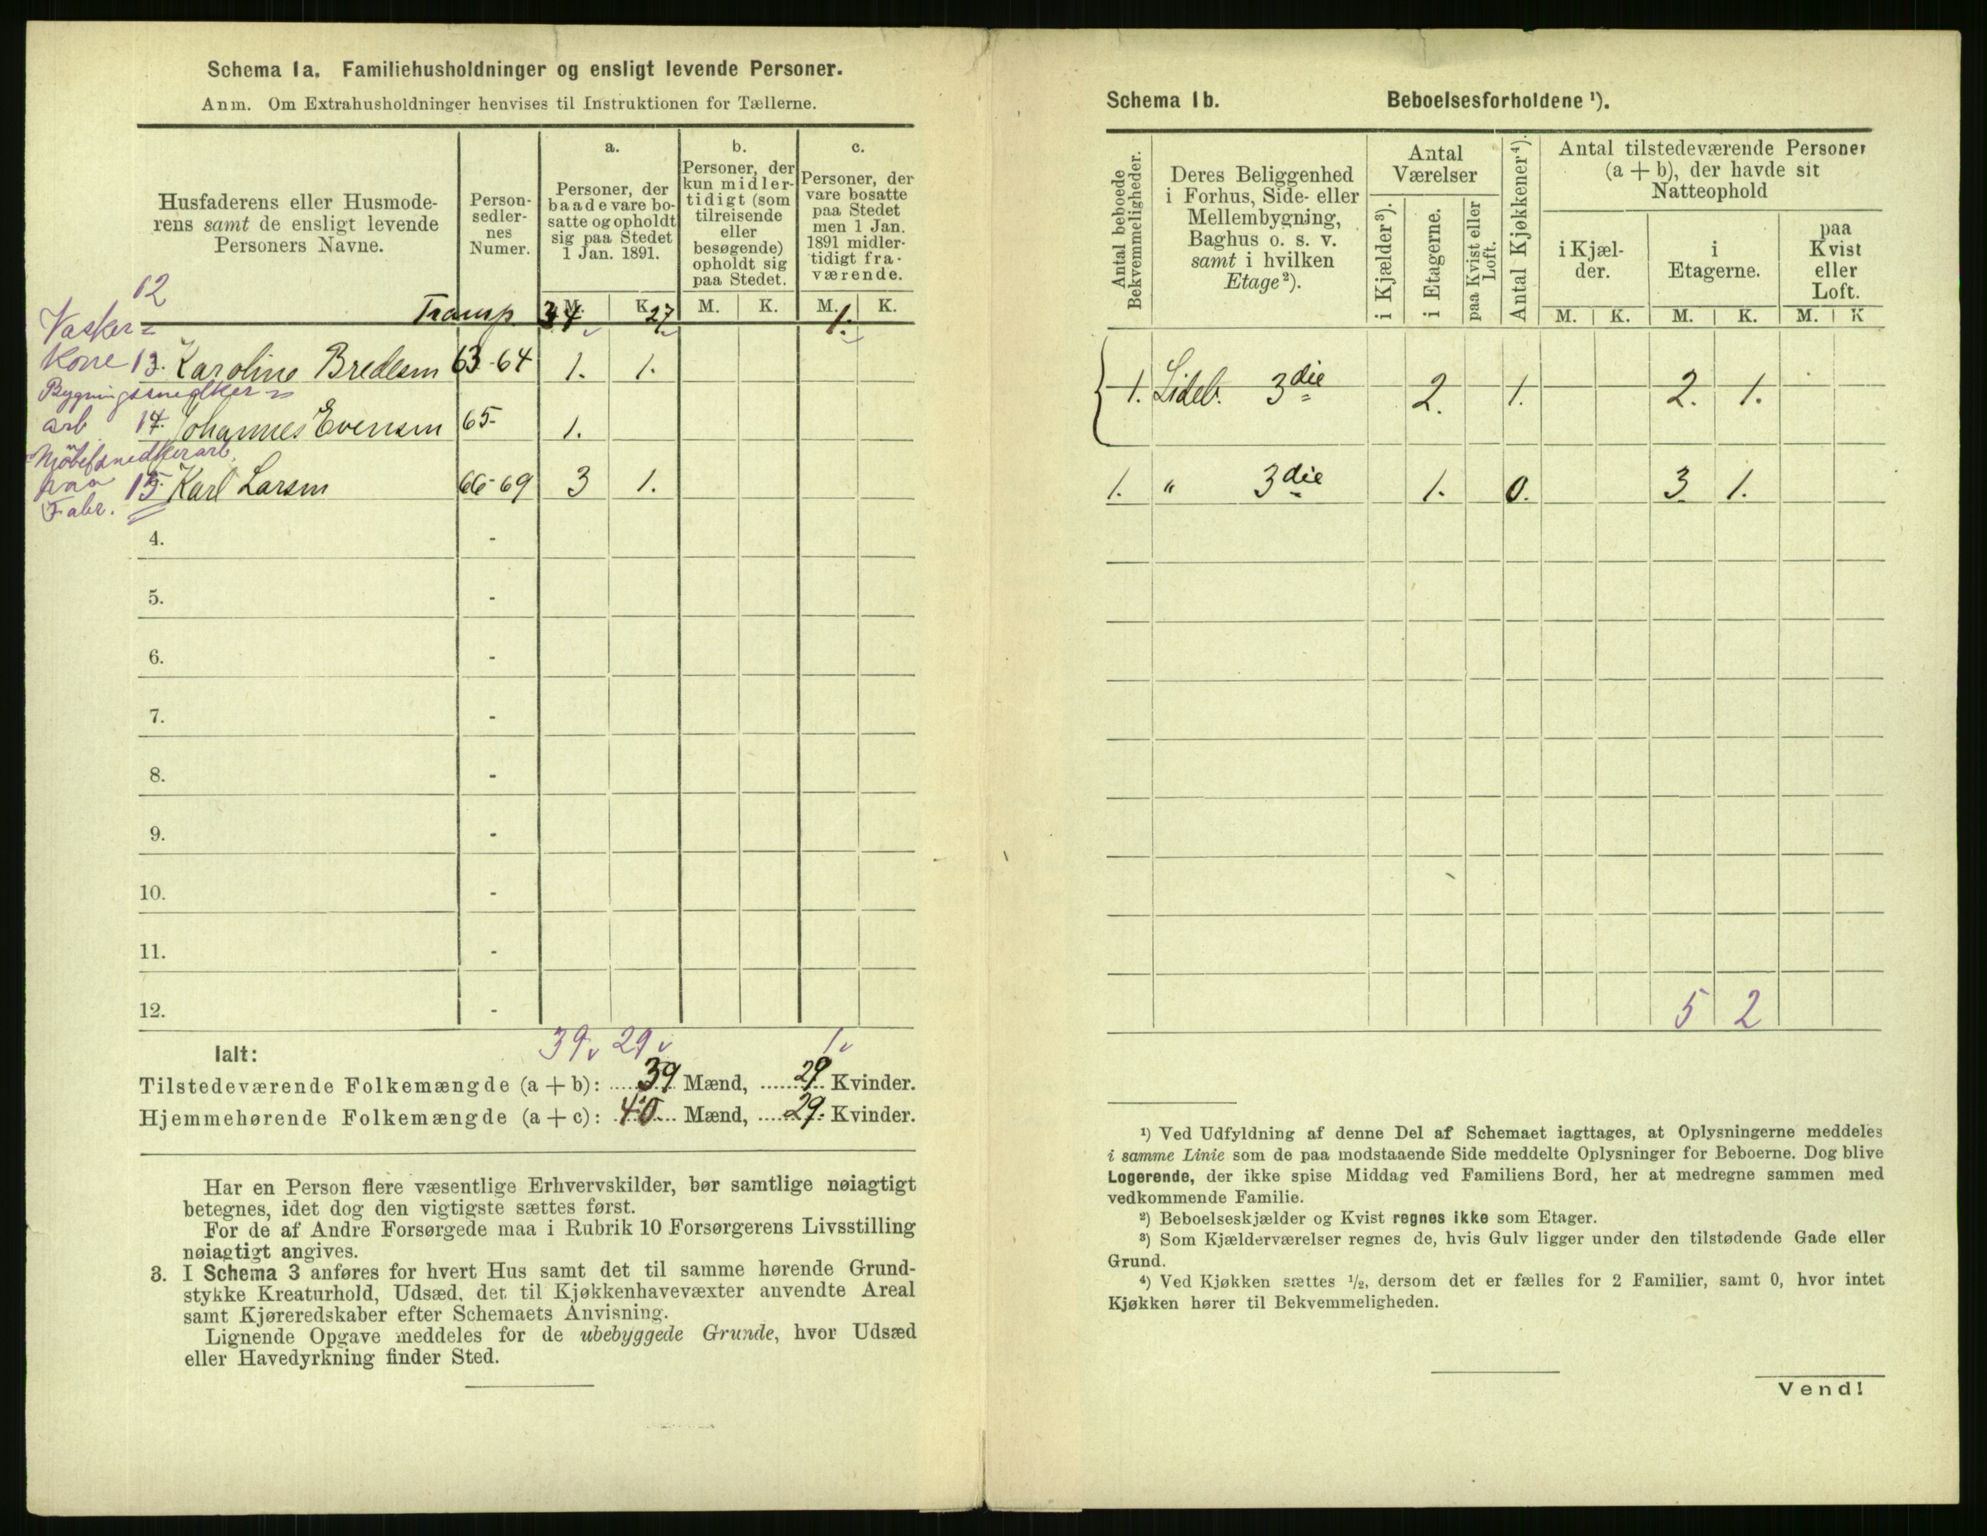 Schema 1a. Familiehusholdninger og ensligt levende Personer.
Anm. Om Extrahusholdninger henvises til Instruktionen for Tællerne.
Husfaderens eller Husmode-
rens samt de ensligt levende
Personers Navne.
Person-
sedler-
nes
Numer.
a.
Personer, der
baade vare bo-
satte og opholdt
sig paa Stedet
1 Jan. 1891.
b.
Personer, der
kun midler-
tidigt (som
tilreisende
eller
besøgende)
opholdt sig
paa Stedet.
c.
Personer, der
vare bosatte
paa Stedet
men 1 Jan.
1891 midler-
tidigt fra-
værende.
M. K. M. K. M. K.
12
Transp 34 27 1.
Vasker=
Kone 13. Karoline Bredesen 63-64 1. 1.
Bygningssnedker=
arb 14. Johannes Evensen 65- 1.
Möbelsnedkerarb.
paa 15. Karl Larsen 66-69 3 1.
Fabr.
4. -
5. -
6. -
7. -
8. -
9. -
10. -
11. -
12. -
39 29 1
Ialt:
Tilstedeværende Folkemængde (a + b): 39 Mænd, 29 Kvinder.
Hjemmehørende Folkemængde (a + c): 40 Mænd, 29 Kvinder.
Har en Person flere væsentlige Erhvervskilder, bør samtlige nøiagtigt
betegnes, idet dog den vigtigste sættes først.
For de af Andre Forsørgede maa i Rubrik 10 Forsørgerens Livsstilling
nøiagtigt angives.
3. I Schema 3 anføres for hvert Hus samt det til samme hørende Grund-
stykke Kreaturhold, Udsæd, det til Kjøkkenhavevæxter anvendte Areal
samt Kjøreredskaber efter Schemaets Anvisning.
Lignende Opgave meddeles for de ubebyggede Grunde, hvor Udsæd
eller Havedyrkning finder Sted.
Schema 1b. Beboelsesforholdene ¹).
Antal beboede
Bekvemmeligheder.
Deres Beliggenhed
i Forhus, Side- eller
Mellembygning,
Baghus o. s. v.
samt i hvilken
Etage²).
Antal
Værelser
i Kjælder³).
i Etagerne.
paa Kvist eller
Loft.
Antal Kjøkkener⁴).
Antal tilstedeværende Personer
(a + b), der havde sit
Natteophold
i Kjæl-
der.
i
Etagerne.
paa
Kvist
eller
Loft.
M. K. M. K. M. K
1. Sideb. 3die 2. 1. 2. 1.
1. " 3die 1. 0. 3 1.
5 2
¹) Ved Udfyldning af denne Del af Schemaet iagttages, at Oplysningerne meddeles
i samme Linie som de paa modstaaende Side meddelte Oplysninger for Beboerne. Dog blive
Logerende, der ikke spise Middag ved Familiens Bord, her at medregne sammen med
vedkommende Familie.
²) Beboelseskjælder og Kvist regnes ikke som Etager.
³) Som Kjælderværelser regnes de, hvis Gulv ligger under den tilstødende Gade eller
Grund.
⁴) Ved Kjøkken sættes ½, dersom det er fælles for 2 Familier, samt 0, hvor intet
Kjøkken hører til Bekvemmeligheden.
Vend!